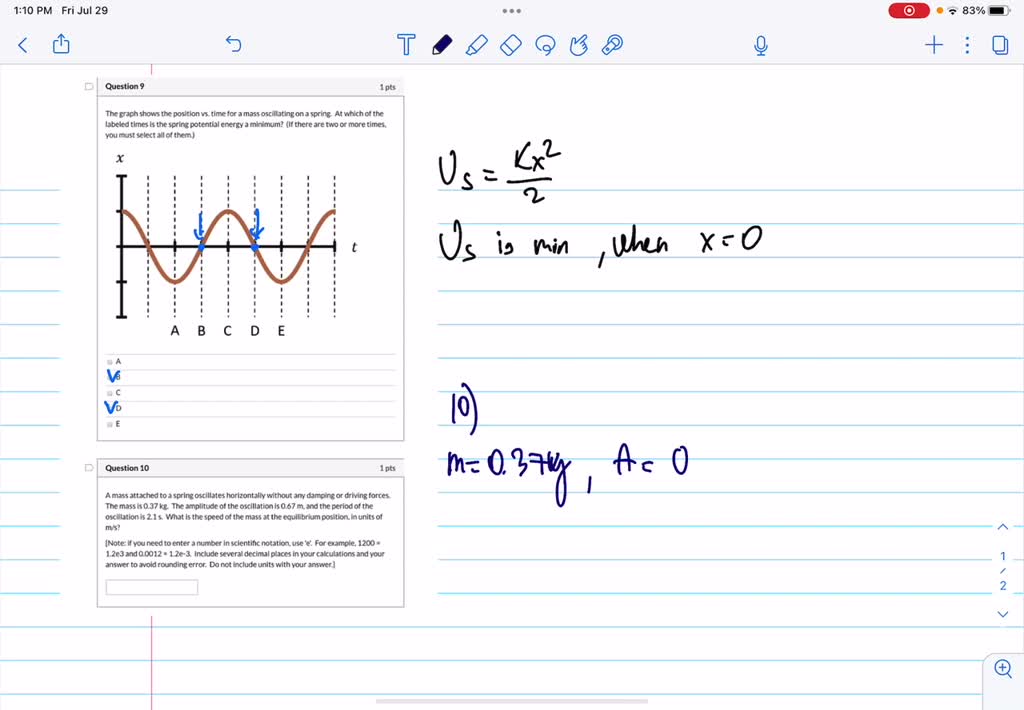 1:10 PM Fri Jul 29
83%
T
Question 9
1 pts
The graph shows the position vs. time for a mass oscillating on a spring. At which of the
labeled times is the spring potential energy a minimum? (If there are two or more times,
you must select all of them.)
x
t
A B C D E
A
B
C
D
E
Us = Kx²/2
Us is min , when x = 0
10)
m = 0.37kg , A = 0
Question 10
1 pts
A mass attached to a spring oscillates horizontally without any damping or driving forces.
The mass is 0.37 kg. The amplitude of the oscillation is 0.67 m, and the period of the
oscillation is 2.1 s. What is the speed of the mass at the equilibrium position, in units of
m/s?
[Note: if you need to enter a number in scientific notation, use 'e'. For example, 1200 =
1.2e3 and 0.0012 = 1.2e-3. Include several decimal places in your calculations and your
answer to avoid rounding error. Do not include units with your answer.]
1
/
2